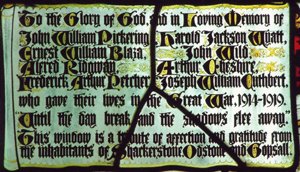 To the Glory of God, and in Loving Memory of
John William Pickering, Harold Jackson Wyatt,
Ernest William Blaza, John Wild,
Alfred Ridgway, Arthur Cheshire,
Frederick Arthur Petcher, Joseph William Cuthbert,
who gave their lives in the Great War, 1914-1919.
"Until the day break and the shadows flee away."
This window is a tribute of affection and gratitude from
the inhabitants of Shackerstone, Odstone and Gopsall.